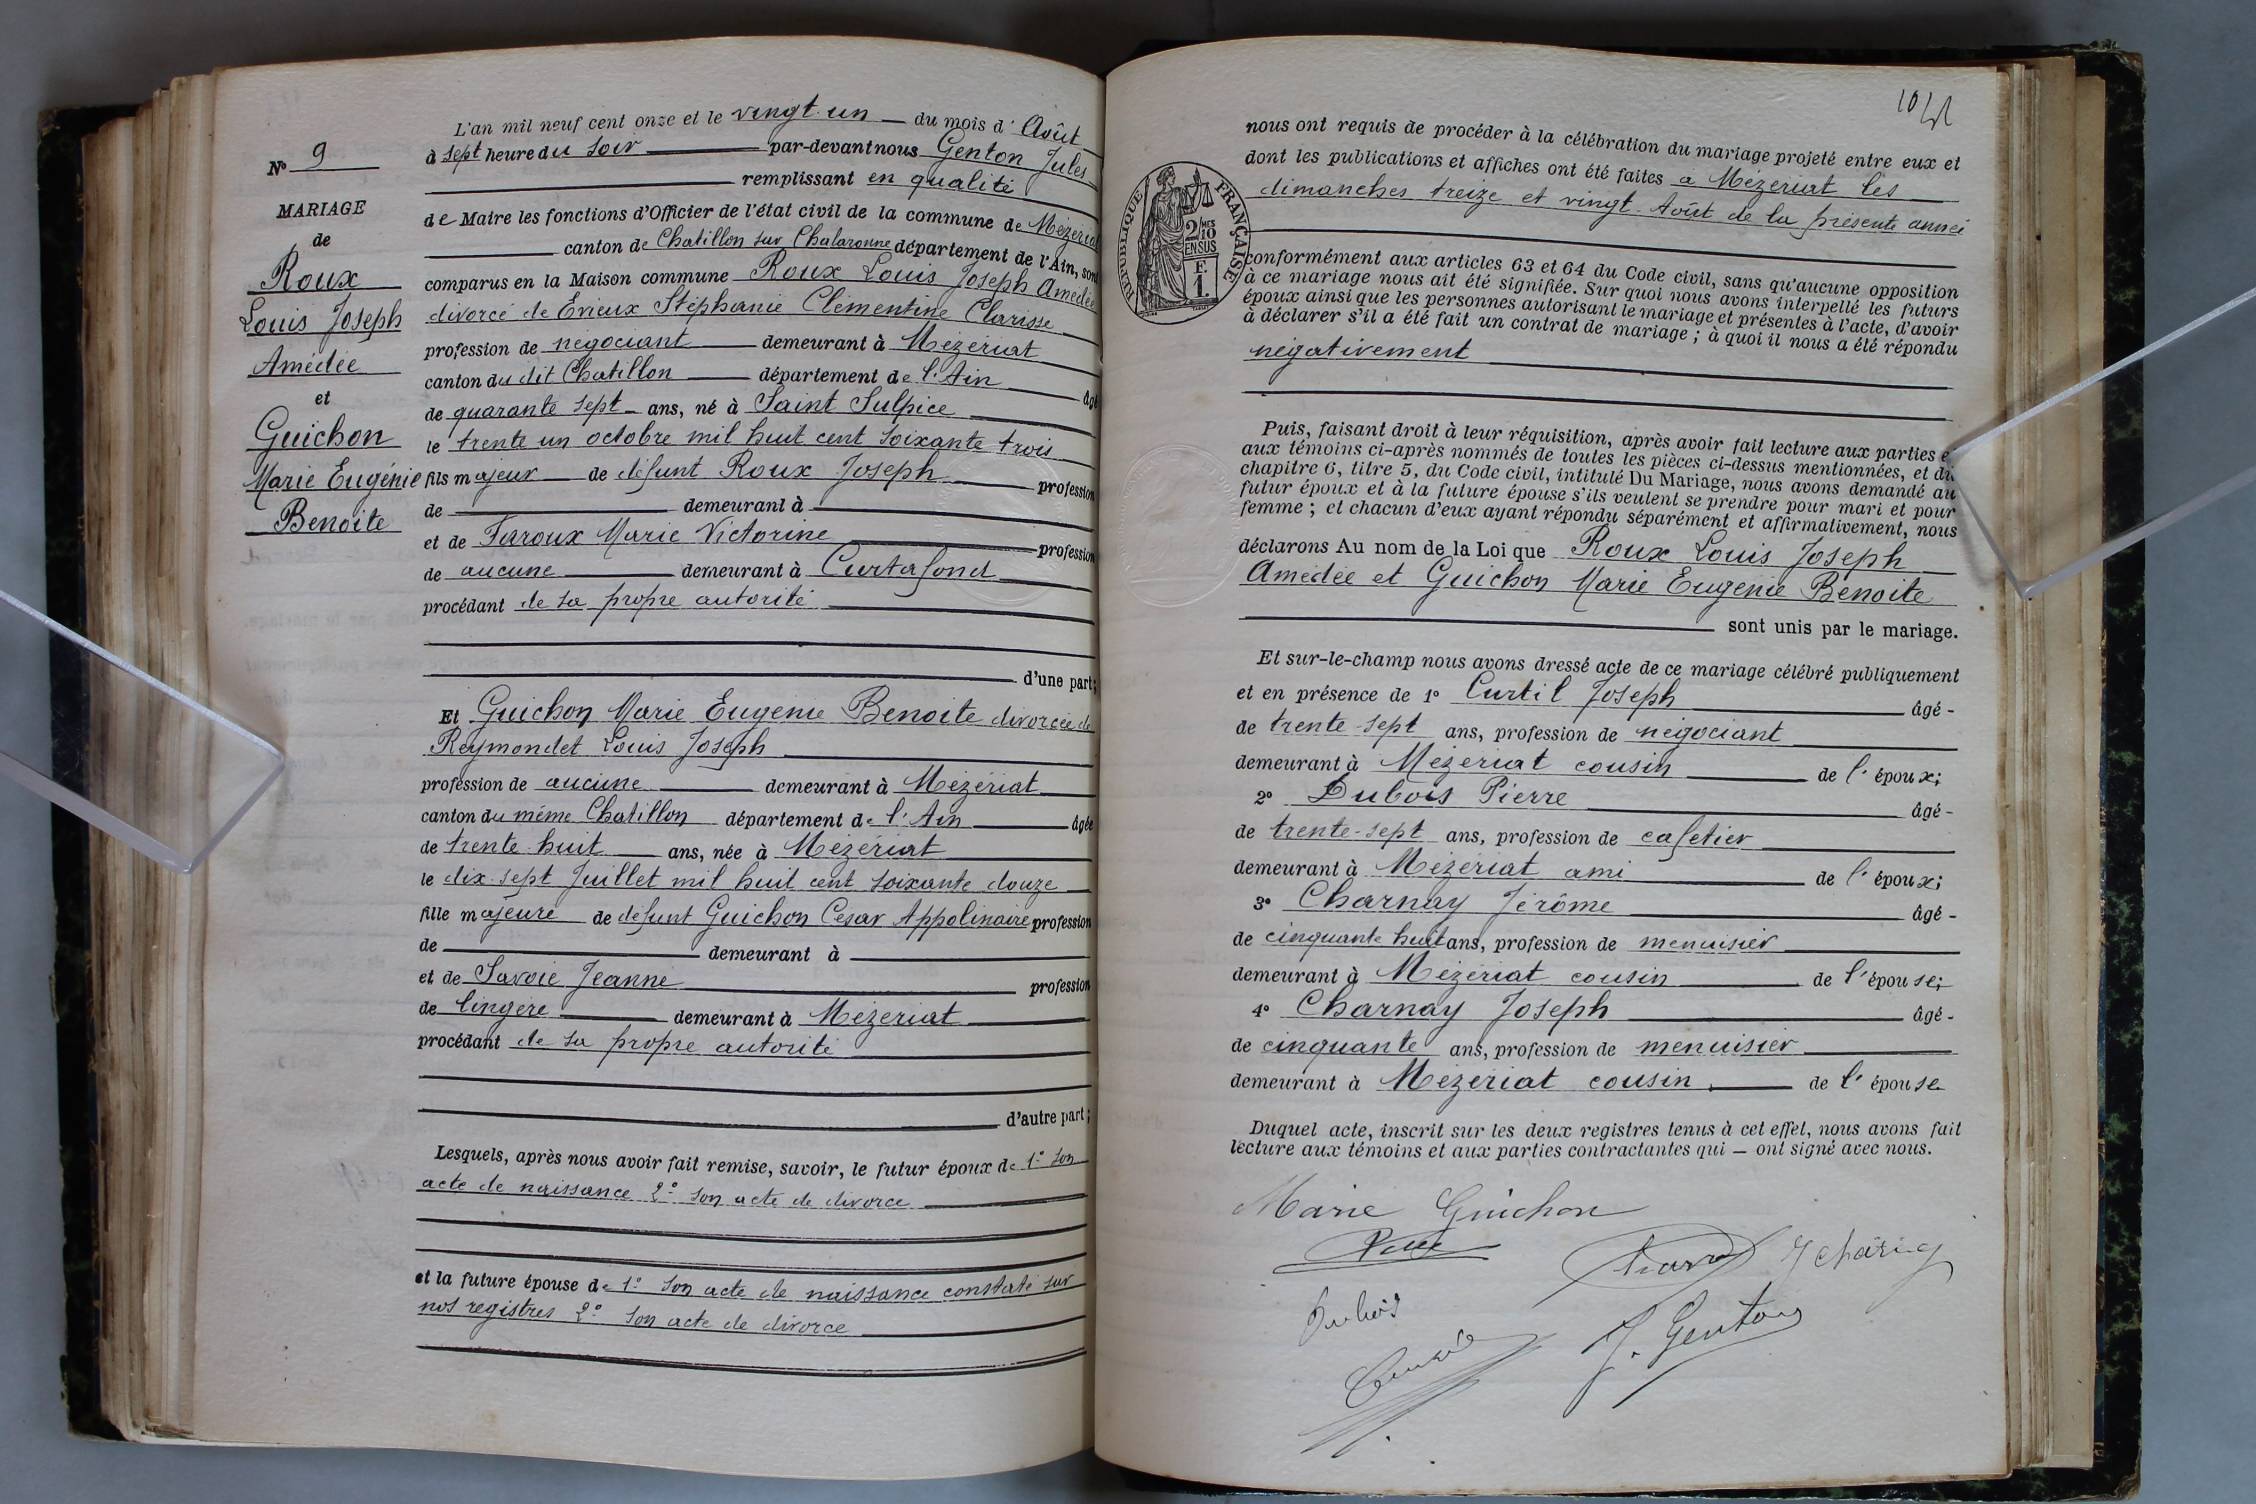 L'an mil neuf cent onze et le vingt-un — du mois d' Août
N° 9
à sept heure du soir — par-devant nous Genton Jules
remplissant en qualité
MARIAGE
de Maire les fonctions d'Officier de l'état civil de la commune de Mézériat
de
canton de Chatillon sur Chalaronne département de l'Ain, sont
Roux
comparus en la Maison commune Roux Louis Joseph Amédée
Louis Joseph
divorcé de Evieux Stéphanie Clémentine Clarisse
profession de négociant demeurant à Mézériat
Amédée
canton du dit Chatillon département de l'Ain âgé
et
de quarante sept ans, né à Saint Sulpice
Guichon
le trente un octobre mil huit cent soixante trois
Marie Eugénie
fils majeur de défunt Roux Joseph profession
Benoite
de demeurant à
et de Faroux Marie Victorine profession
de aucune demeurant à Curtafond
procédant de sa propre autorité
d'une part;
Et Guichon Marie Eugenie Benoite divorcée de
Reymondet Louis Joseph
profession de aucune demeurant à Mézériat
canton du même Chatillon département de l'Ain âgée
de trente-huit ans, née à Mézériat
le dix-sept Juillet mil huit cent soixante douze
fille majeure de défunt Guichon César Appolinaire profession
de demeurant à
et de Savoie Jeanne profession
de lingère demeurant à Mézériat
procédant de sa propre autorité
d'autre part;
Lesquels, après nous avoir fait remise, savoir, le futur époux de 1° son
acte de naissance 2° son acte de divorce
et la future épouse de 1° son acte de naissance constaté sur
nos registres 2° son acte de divorce
nous ont requis de procéder à la célébration du mariage projeté entre eux et
dont les publications et affiches ont été faites a Mézériat les
dimanches treize et vingt Août de la présente année
RÉPUBLIQUE FRANÇAISE
2/10 MES
EN SUS
F.
1.
conformément aux articles 63 et 64 du Code civil, sans qu'aucune opposition
à ce mariage nous ait été signifiée. Sur quoi nous avons interpellé les futurs
époux ainsi que les personnes autorisant le mariage et présentes à l'acte, d'avoir
à déclarer s'il a été fait un contrat de mariage; à quoi il nous a été répondu
négativement
Puis, faisant droit à leur réquisition, après avoir fait lecture aux parties e
aux témoins ci-après nommés de toutes les pièces ci-dessus mentionnées, et du
chapitre 6, titre 5, du Code civil, intitulé Du Mariage, nous avons demandé au
futur époux et à la future épouse s'ils veulent se prendre pour mari et pour
femme; et chacun d'eux ayant répondu séparément et affirmativement, nous
déclarons Au nom de la Loi que Roux Louis Joseph
Amédée et Guichon Marie Eugenie Benoite
sont unis par le mariage.
Et sur-le-champ nous avons dressé acte de ce mariage célébré publiquement
et en présence de 1° Curtil Joseph âgé -
de trente-sept ans, profession de négociant
demeurant à Mézériat cousin de l'époux;
2° Dubois Pierre âgé -
de trente-sept ans, profession de cafetier
demeurant à Mézériat ami de l'époux;
3° Charnay Jérôme âgé -
de cinquante huit ans, profession de menuisier
demeurant à Mézériat cousin de l'épouse;
4° Charnay Joseph âgé -
de cinquante ans, profession de menuisier
demeurant à Mézériat cousin de l'épouse
Duquel acte, inscrit sur les deux registres tenus à cet effet, nous avons fait
lecture aux témoins et aux parties contractantes qui — ont signé avec nous.
Marie Guichon
Dubois
J. Genton